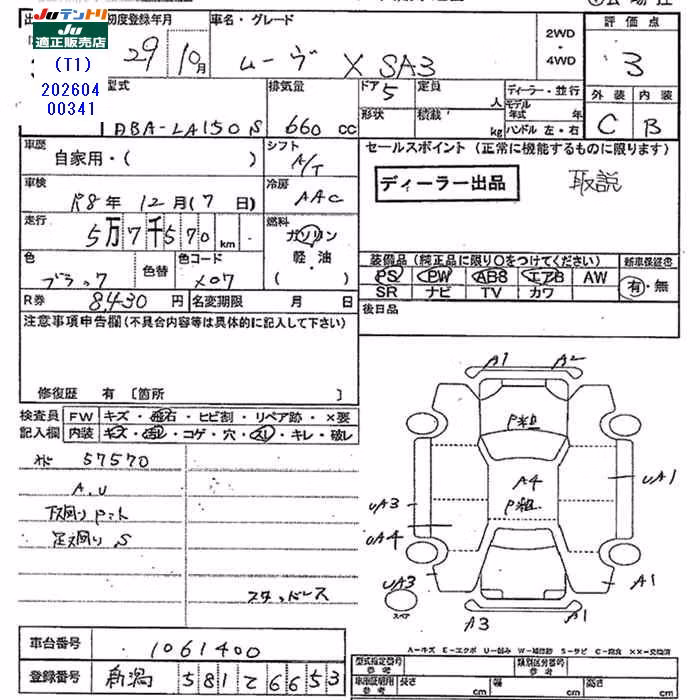 JUテントリ
JU適正販売店
(T1)
202604
00341
初度登録年月
29 10月
車名・グレード
ムーヴ X SA3
2WD
・
4WD
評価点
3
型式
DBA-LA150S
排気量
660 cc
ドア 5
定員 人
形状
積載 kg
ディーラー・並行
モデル年式 年
ハンドル 左・右
外装 内装
C B
車歴
自家用・( )
シフト
A/T
セールスポイント (正常に機能するものに限ります)
ディーラー出品
取説
車検
R8年 12月(7日)
冷房
AAC
走行
5万7千570km
燃料
ガソリン
軽・油
( )
色
ブラック
色替
色コード
X07
装備品 (純正品に限り○をつけてください)
PS PW ABS エアB AW
SR ナビ TV カワ
新車保証書
有・無
R券 8430円
名変期限 月 日
後日品
注意事項申告欄(不具合内容等は具体的に記入して下さい)
修復歴 有 〔箇所 〕
検査員記入欄
FW キズ・飛石・ヒビ割・リペア跡・×要
内装 キズ・汚レ・コゲ・穴・スレ・キレ・破レ
57570
A.U
下廻りPコト
足廻りS
スタッドレス
A1 A2
A4
UA1
UA3
UA4
UA3
A1
A3 A1
スペア
A-キズ E-エクボ U-凹み W-補修跡 S-サビ C-腐食 ××-交換済
車台番号 1061400
登録番号 新潟 581 て 6653
型式指定番号 参考
類別区分番号 参考
車庫証明用 参考
長さ cm 幅 cm 高さ cm